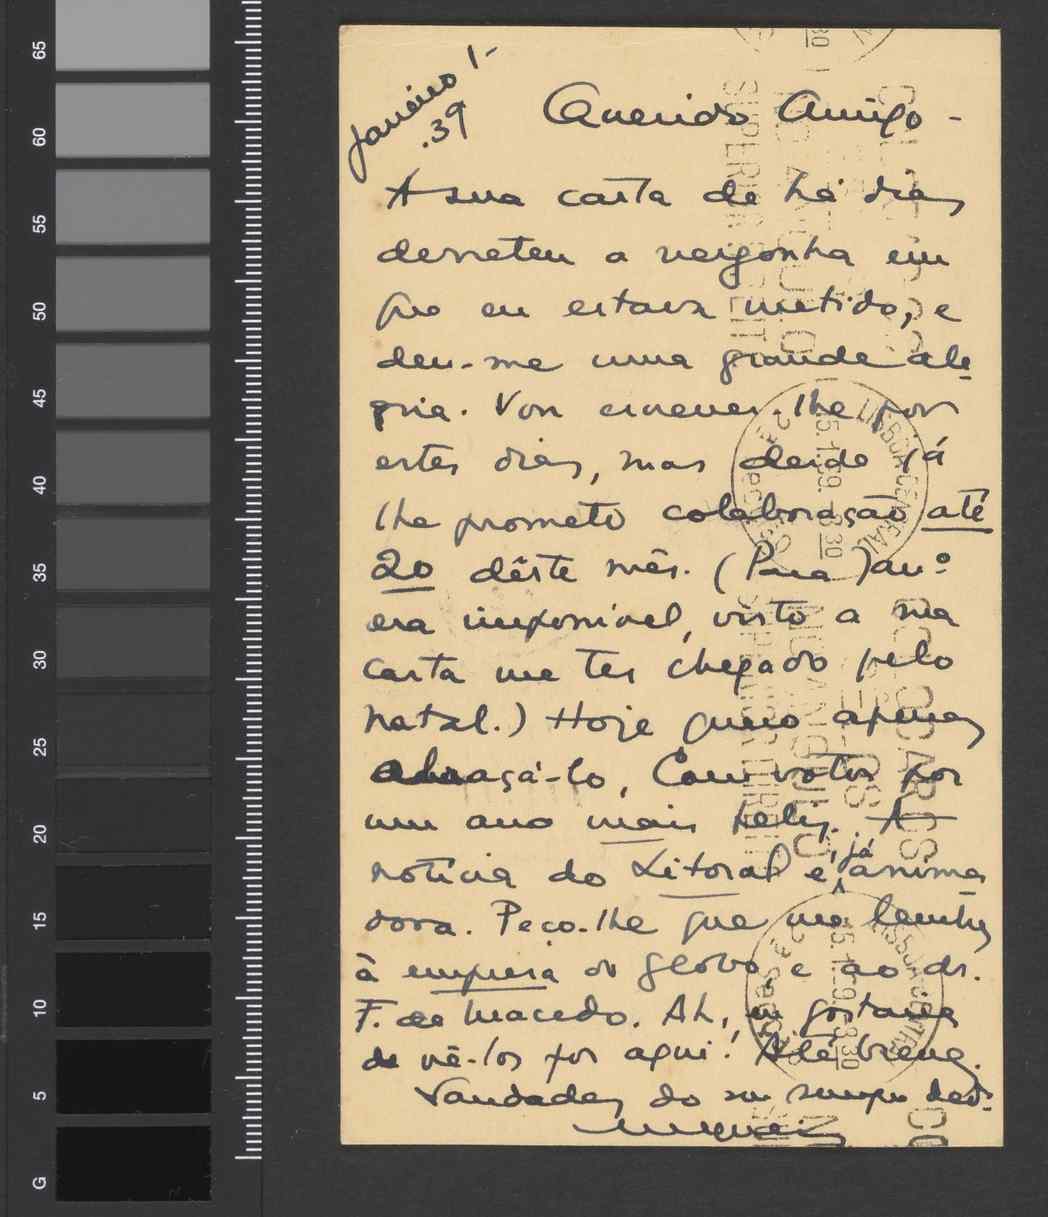 Janeiro 1-
.39
Querido Amigo -
A sua carta de há dias
derreteu a vergonha em
que eu estava metido, e
deu-me uma grande ale
gria. Vou escrever-lhe por
estes dias, mas desde já
lhe prometo colaboração até
20 dêste mês. (Para Jan.º
era impossível, visto a sua
carta me ter chegado pelo
natal.) Hoje quero apenas
abraçá-lo, com votos por
um ano mais feliz. A
notícia do Litoral é, já, anima
dora. Peço-lhe que me lembre
à empresa do Globo, e ao dr.
F. de Macedo. Ah, se gostaria
de vê-los por aqui! Até breve.
Saudades do seu sempre ded.º
LISBOA CENTRAL
25.1.39.-8.30
LISBOA CENTRAL
25.1.39.-8.30